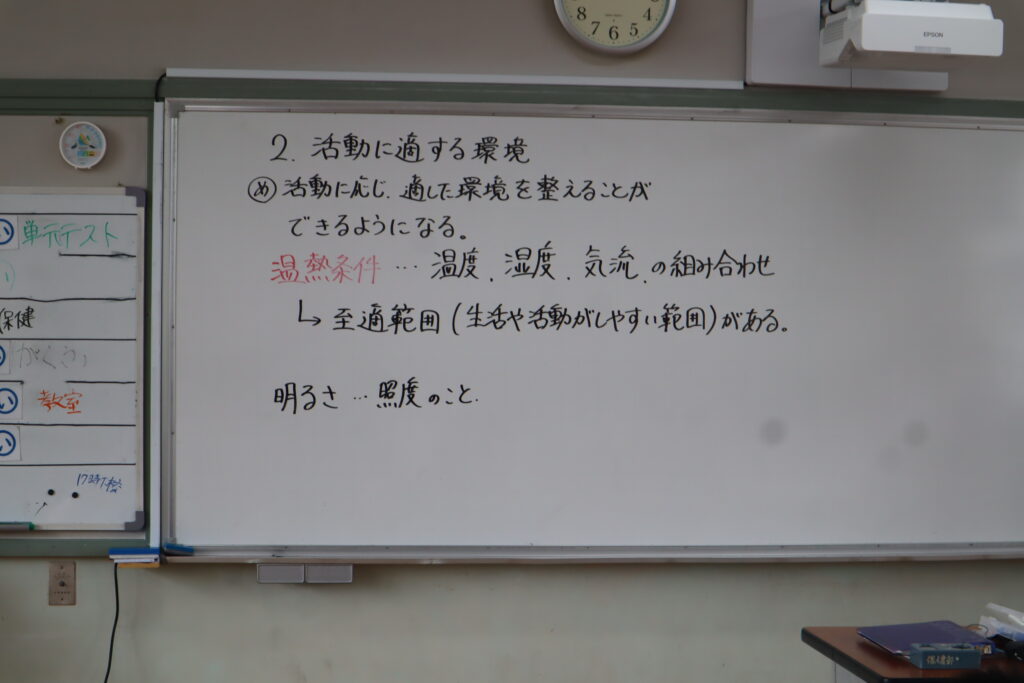 8 7 6 5 4
EPSON
2. 活動に適する環境
め 活動に応じ、適した環境を整えることが
できるようになる。
温熱条件 … 温度、湿度、気流、の組み合わせ
↳ 至適範囲(生活や活動がしやすい範囲)がある。
明るさ … 照度のこと.
い 単元テスト
保健
い 教室
い